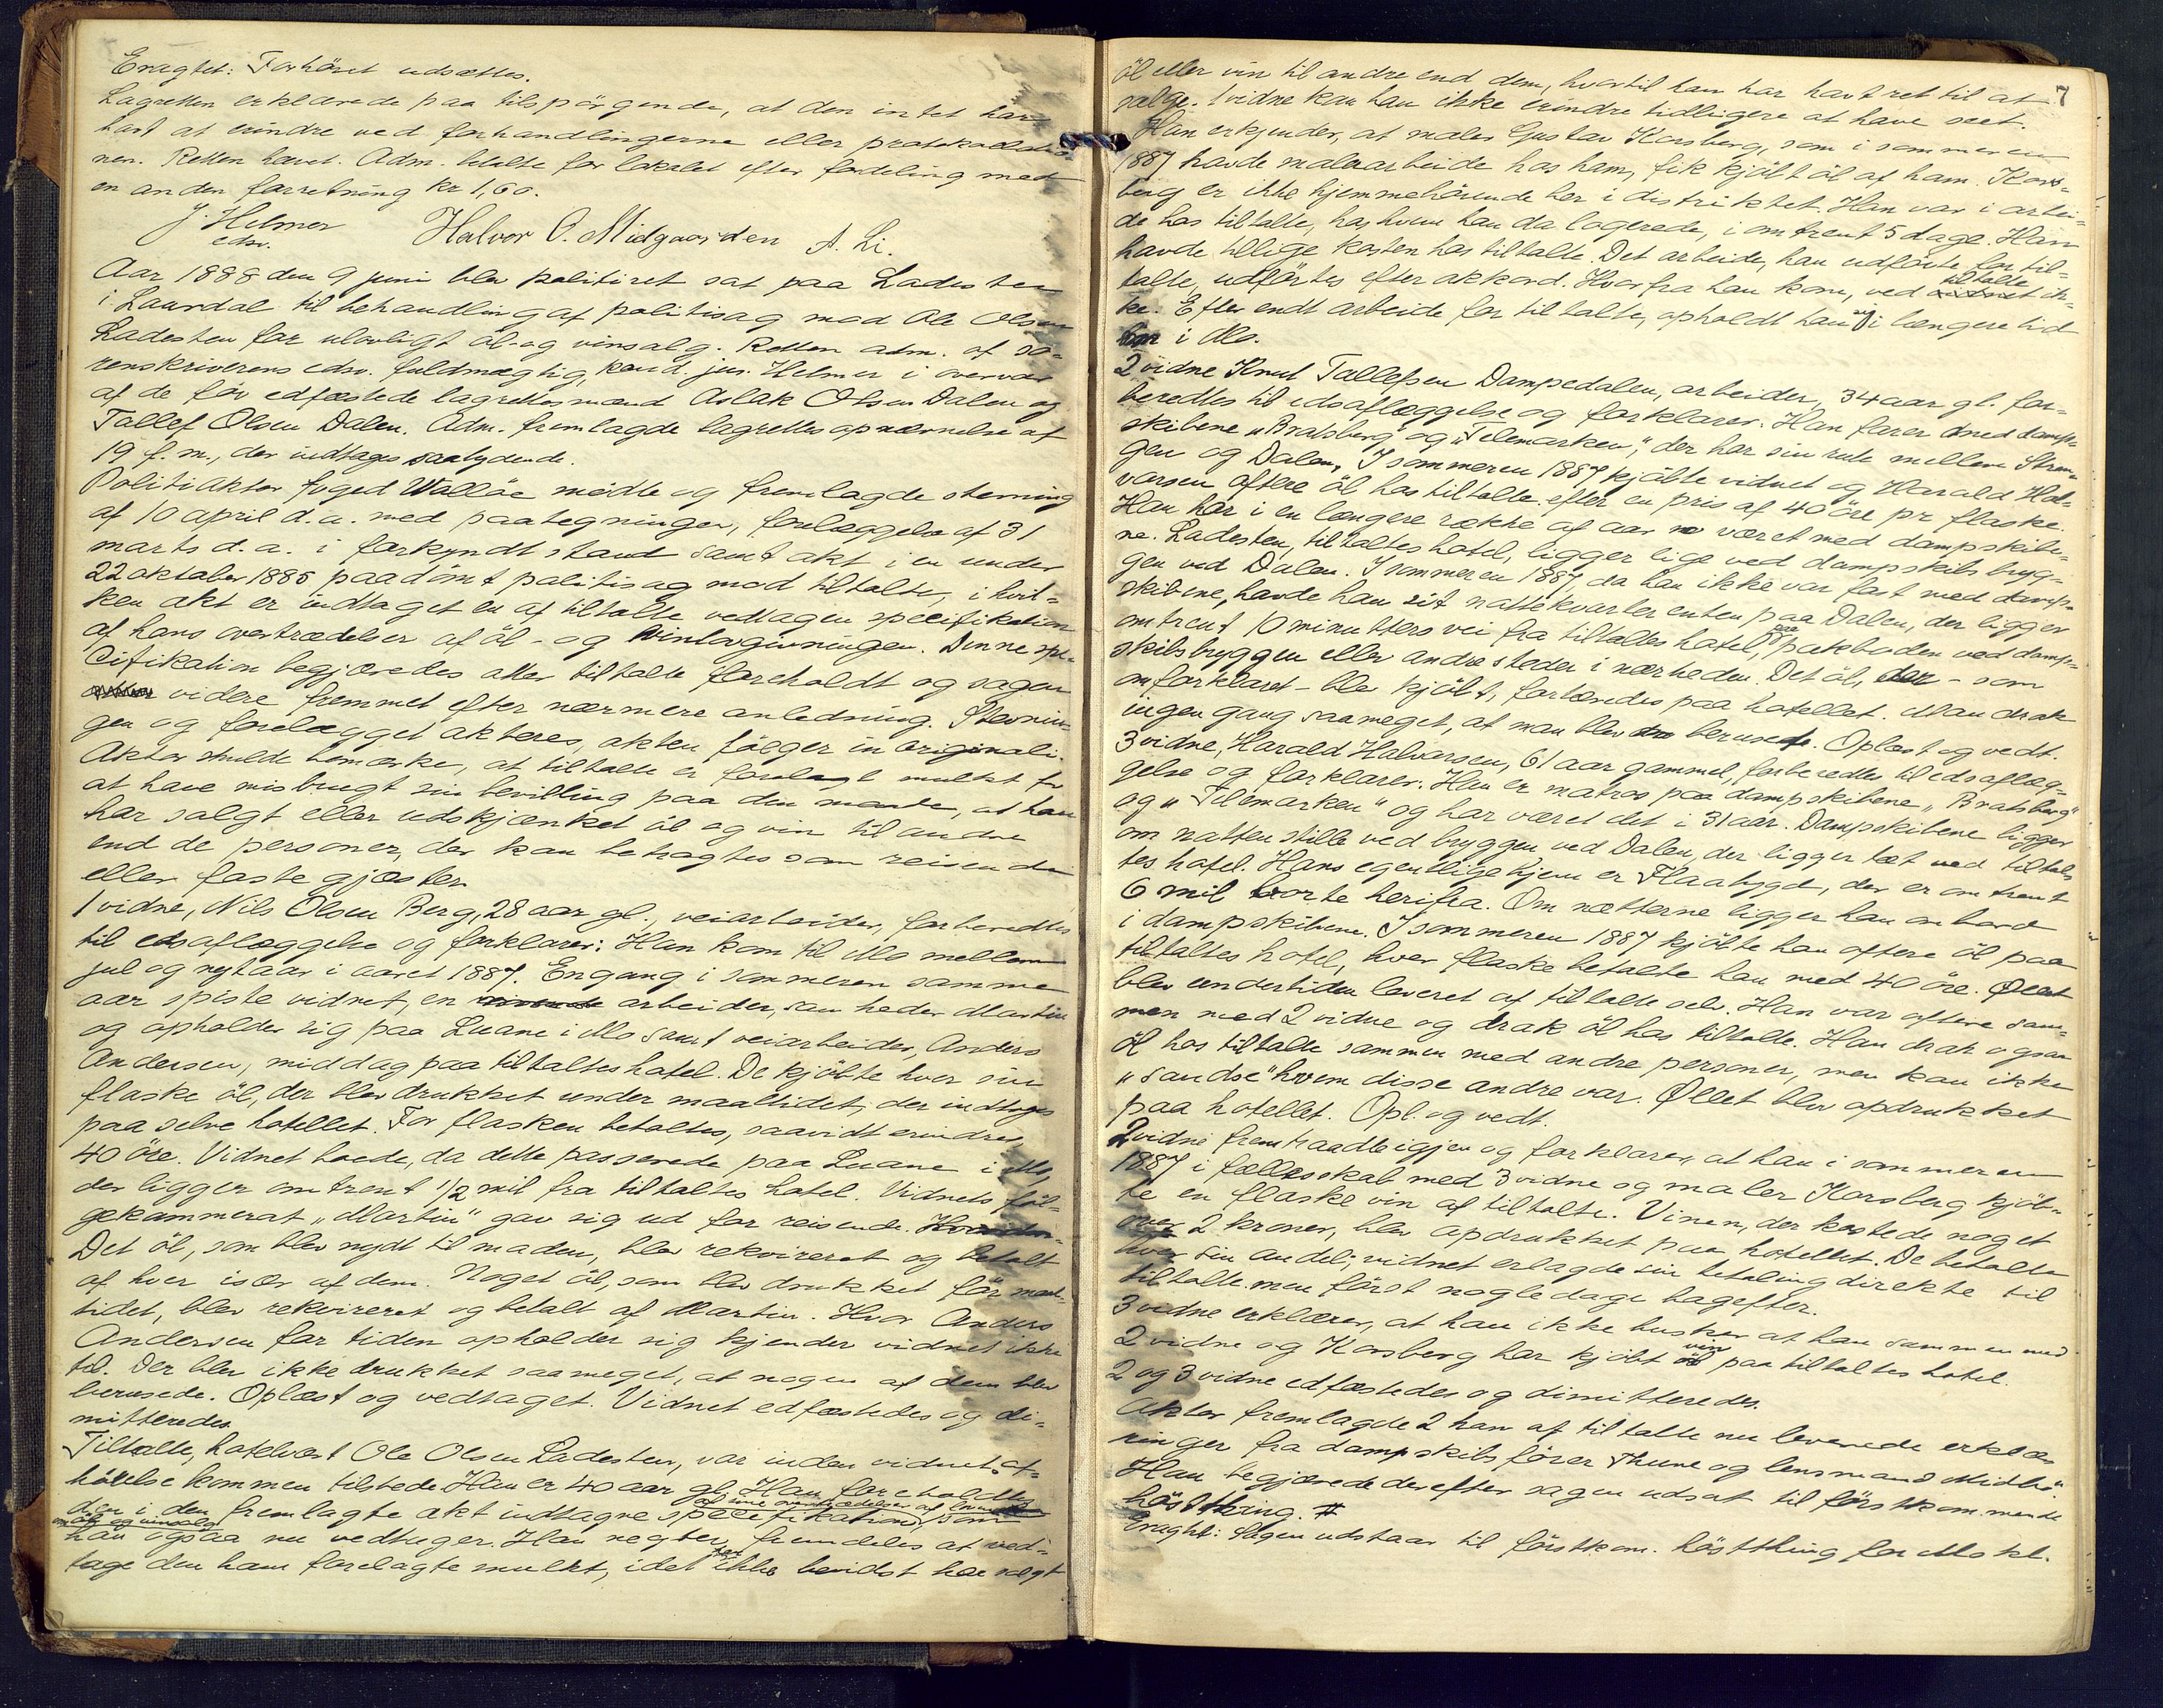 Eragtet: Forhöret udsættes.
Lagretten erklærede paa tilspörgende, at den intet har
havt at erindre ved forhandlingerne eller protokollatio-
nen. Retten hævet. Adm. betalte for lokalet efter fordeling med
en anden forretning Kr 1,60.
J. Helmer Halvor O. Midgaarden A. Li.
edsv.
Aar 1888 den 9 juni blev politiret sat paa Ladesten
i Laurdal til behandling af politisag mod Ole Olsen
Ladesten for ulovligt öl- og vinsalg. Retten adm. af so-
renskriverens edsv. fuldmægtig, kand. jur. Helmer i overvær
af de för edfæstede lagrettesmænd Aslak Olsen Dalen og
Tallef Olsen Dalen. Adm. fremlagde lagrettesopnævnelse af
19 f. m., der indtages saalydende.
Politiaktor foged Walløe mödte og fremlagde stevning
af 10 april d. a. med paategninger, forelæggelse af 31
marts d. a. i forkyndt stand samt akt i en under
22 oktober 1885 paadömt politisag mod tiltalte, i hvil-
ken akt er indtaget en af tiltalte vedtagen specifikation
af hans overtrædelser af öl- og vinlovgivningen. Denne spe-
cifikation begjæredes atter tiltalte foreholdt og sagen
videre fremmet efter nærmere anledning. Stevnin-
gen og forelægget akteres, akten fölger in originali.
Aktor skulde bemærke, at tiltalte er forelagt mulkt for
at have misbrugt sin bevilling paa den maade, at han
har solgt eller udskjænket öl og vin til andre
end de personer, der kan betragtes som reisende
eller faste gjæster.
1 vidne, Nils Olsen Berg, 28 aar gl., veiarbeider, forberedtes
til edsaflæggelse og forklarer: Han kom til Mo mellem
jul og nytaar i aaret 1887. Engang i sommeren samme
aar spiste vidnet, en arbeider, som heder Martin
og opholder sig paa Luane i Mo samt veiarbeider, Anders
Andersen, middag paa tiltaltes hotel. De kjöbte hver sin
flaske öl, der blev drukket under maaltidet, der indtoges
paa selve hotellet. For flasken betaltes, saavidt erindres,
40 öre. Vidnet boede, da dette passerede paa Luane i Mo,
der ligger omtrent 1/2 mil fra tiltaltes hotel. Vidnets föl-
gekammerat "Martin" gav sig ud for reisende.
Det öl, som blev nydt til maden, blev rekvireret og betalt
af hver især af dem. Noget öl, som blev drukket för maal-
tidet, blev rekvireret og betalt af Martin. Hvor Anders
Andersen for tiden opholder sig kjender vidnet ikke
til. Der blev ikke drukket saameget, at nogen af dem blev
berusede. Oplæst og vedtaget. Vidnet edfæstedes og di-
mitteredes.
Tiltalte, hotelvært Ole Olsen Ladesten, var inden vidnets af-
hörelse kommen tilstede. Han er 40 aar gl. Han foreholdtes
den i den fremlagte akt indtagne specifikation af sine overtrædelser af loven
om öl- og vinsalg, som
han ogsaa nu vedtager. Han negter fremdeles at ved-
tage den ham forelagte mulkt, idet han ikke bevidst har solgt
7
öl eller vin til andre end dem, hvortil han har havt ret til at
sælge. 1 vidne kan han ikke erindre tidligere at have seet.
Han erkjender, at maler Gustav Korsberg, som i sommeren
1887 havde malerarbeide hos ham, fik kjöbt öl af ham. Kors-
berg er ikke hjemmehörende her i distriktet. Han var i arbei-
de hos tiltalte, hos hvem han da logerede, i omtrent 5 dage. Han
havde tillige kosten hos tiltalte. Det arbeide, han udförte for til-
talte, udförtes efter akkord. Hvorfra han kom, ved tiltalte ik-
ke. Efter endt arbeide for tiltalte, opholdt han sig i længere tid
i Mo.
2 vidne Knut Tallefsen Dampedalen, arbeider, 34 aar gl. for-
beredtes til edsaflæggelse og forklarer: Han farer med damp-
skibene "Bratsberg" og "Telemarken", der har sin rute mellem Stren-
gen og Dalen. I sommeren 1887 kjöbte vidnet og Harald Hal-
vorsen oftere öl hos tiltalte efter en pris af 40 öre pr flaske.
Han har i en længere række af aar været med dampskibe-
ne. Ladesten, tiltaltes hotel, ligger lige ved dampskibsbryg-
gen ved Dalen. I sommeren 1887, da han ikke var fast med damp-
skibene, havde han sit nattekvarter enten paa Dalen, der ligger
omtrent 10 minutters vei fra tiltaltes hotel, paa pakboden ved damp-
skibsbryggen eller andre steder i nærheden. Det öl, - som
omforklaret - blev kjöbt, fortæredes paa hotellet. Man drak
ingen gang saameget, at man blev beruset. Oplæst og vedt.
3 vidne, Harald Halvorsen, 61 aar gammel, forberedtes til edsaflæg-
gelse og forklarer: Han er matros paa dampskibene "Bratsberg"
og "Telemarken" og har været det i 31 aar. Dampskibene ligger
om natten stille ved bryggen ved Dalen, der ligger tæt ved tiltal-
tes hotel. Hans egentlige hjem er Flaabygd, der er omtrent
6 mil borte herifra. Om nætterne ligger han ombord
i dampskibene. I sommeren 1887 kjöbte han oftere öl paa
tiltaltes hotel, hver flaske betalte han med 40 öre. Øllet
blev undertiden leveret af tiltalte selv. Han var oftere sam-
men med 2 vidne og drak öl hos tiltalte. Han drak ogsaa
öl hos tiltalte sammen med andre personer, men kan ikke
"sandse" hvem disse andre var. Øllet blev opdrukket
paa hotellet. Opl. og vedt.
2 vidne fremtraadte igjen og forklarer, at han i sommeren
1887 i fællesskab med 3 vidne og maler Korsberg kjöb-
te en flaske vin af tiltalte. Vinen, der kostede noget
over 2 kroner, blev opdrukket paa hotellet. De betalte
hver sin andel; vidnet erlagde sin betaling direkte til
tiltalte. men först nogle dage bagefter.
3 vidne erklærer, at han ikke husker at han sammen med
2 vidne og Korsberg har kjöbt vin paa tiltaltes hotel.
2 og 3 vidne edfæstedes og dimitteredes.
Aktor fremlagde 2 ham af tiltalte nu leverede erklæ-
ringer fra dampskibsförer Thune og lensmand Midbö.
Han begjærede derefter sagen udsat til förstkommende
höstthing.
Eragtet: Sagen udstaar til förstkom. höstthing for Mo tl.